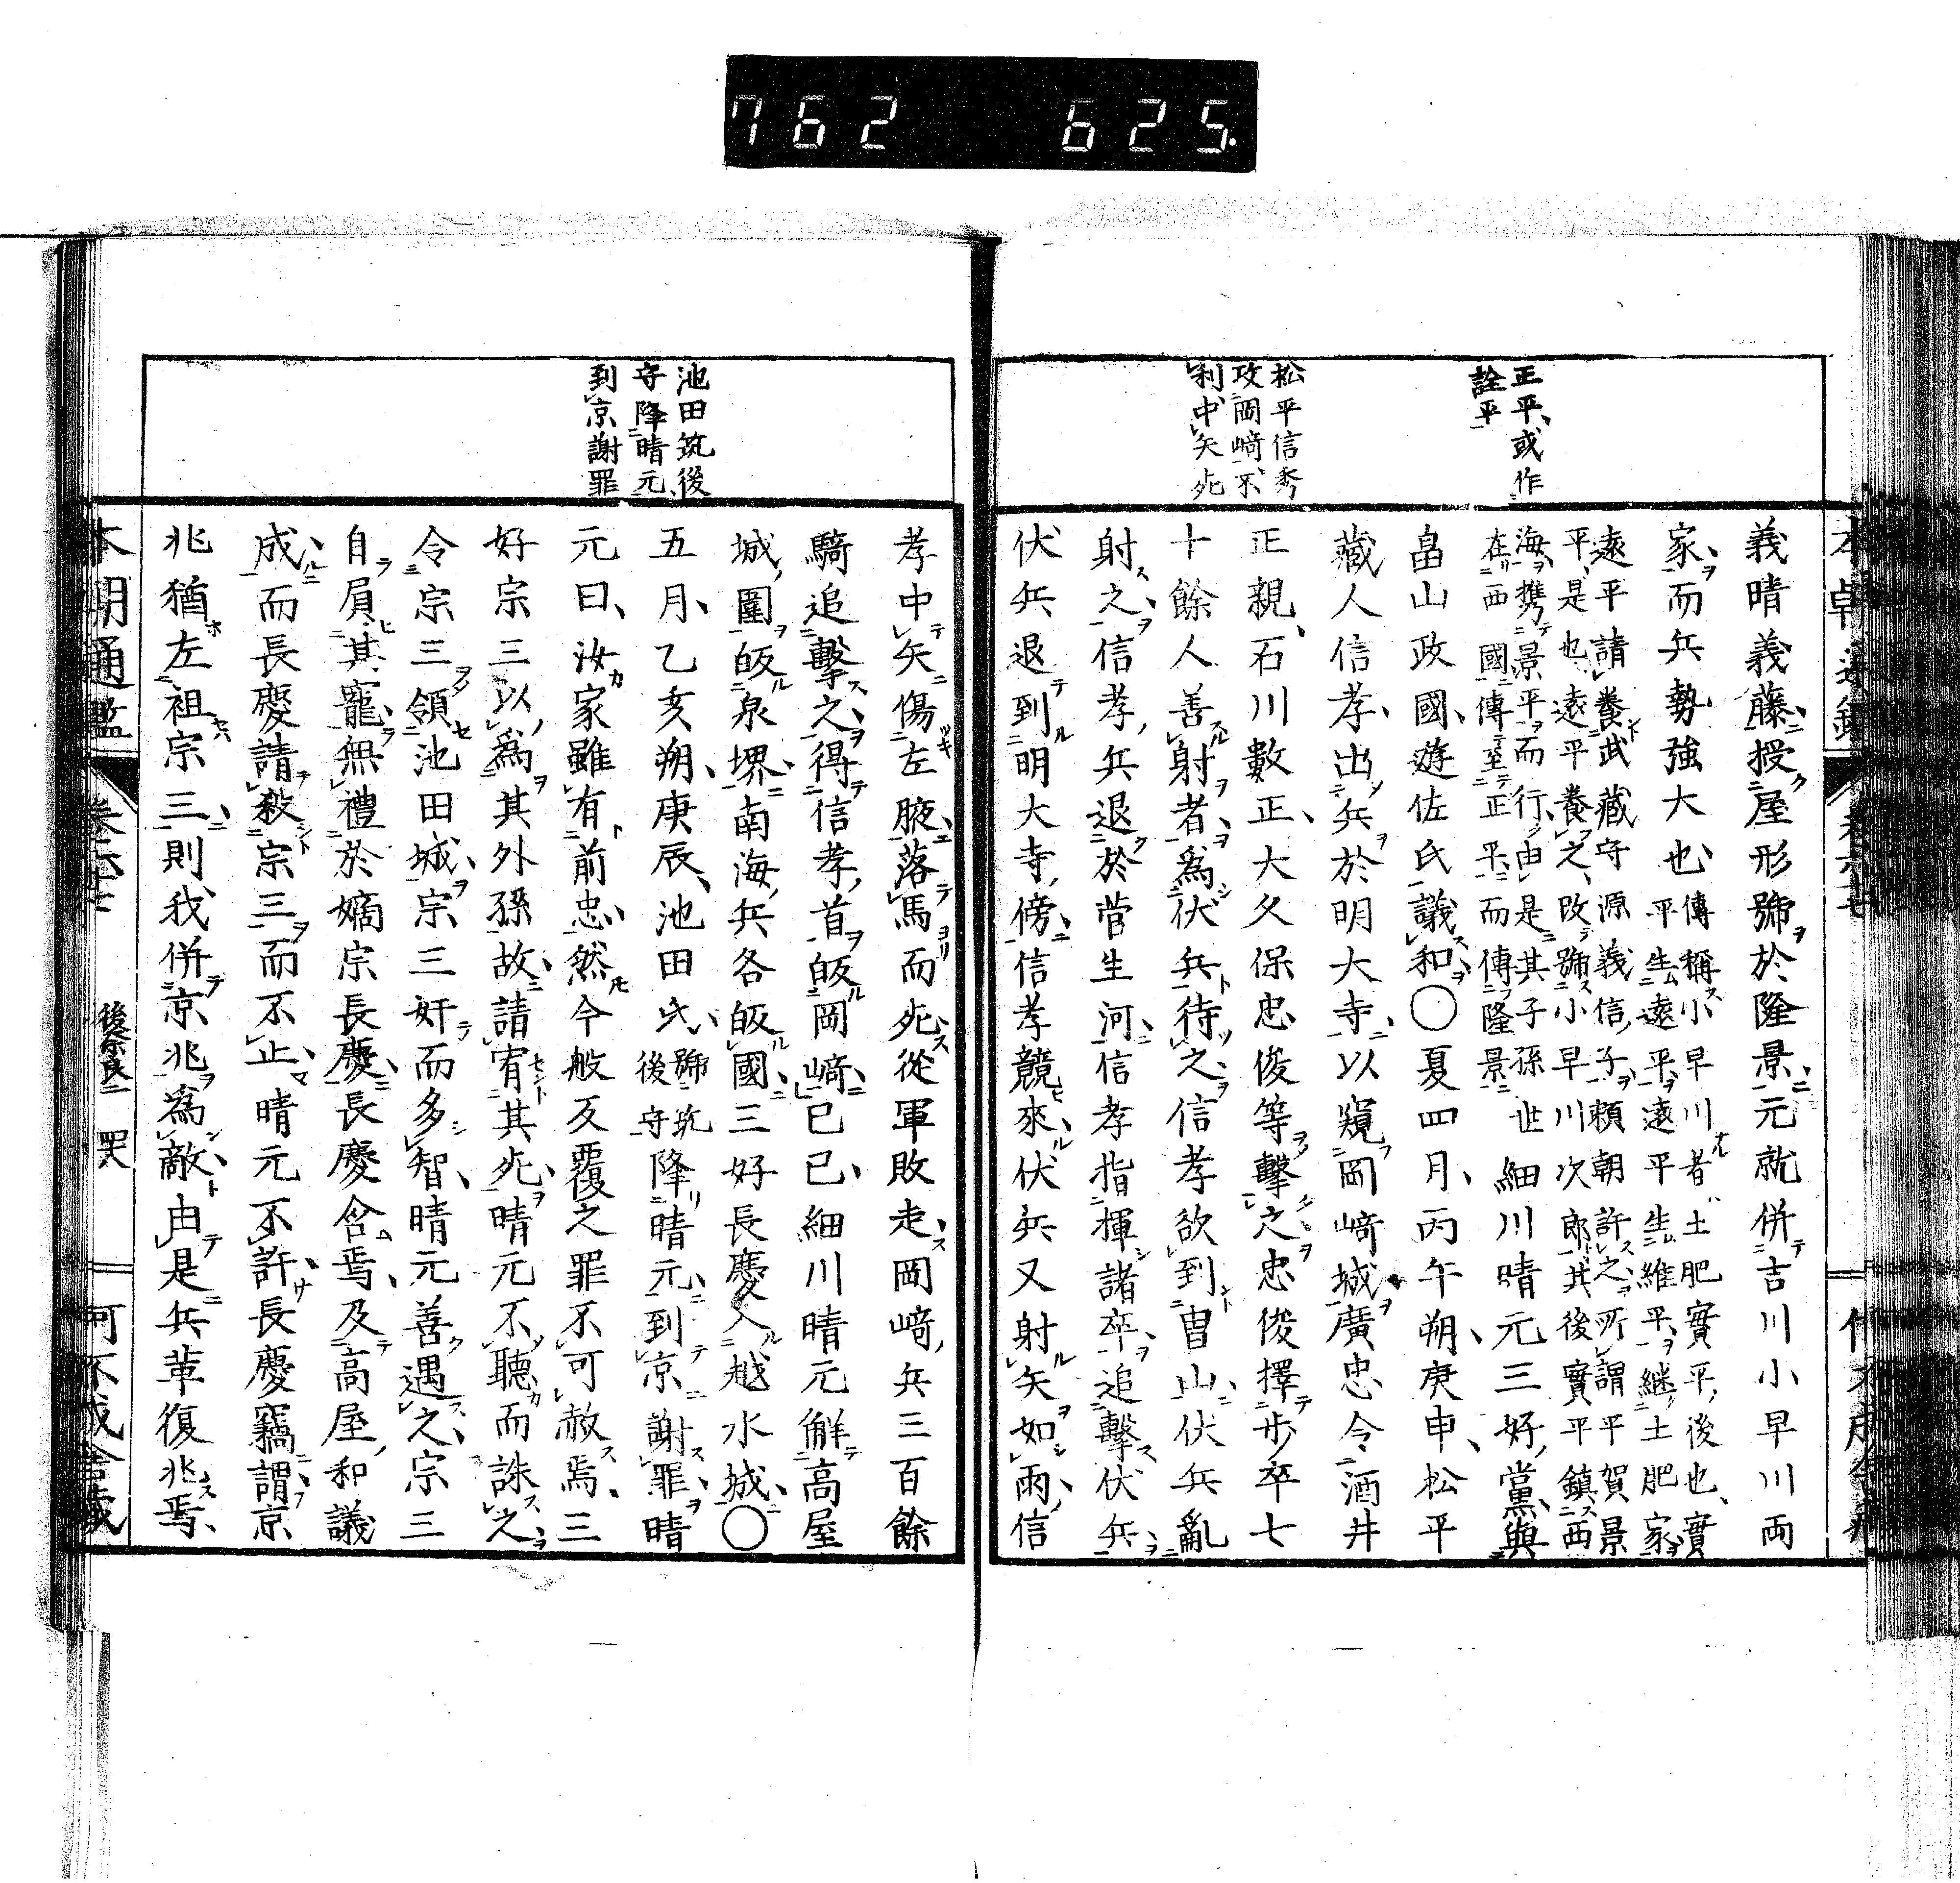 762 625.
正平、或作
詮平
松平信秀
攻岡﨑、不
利、中矢死
義晴義藤授屋形號於隆景元就併吉川小早川両
家、而兵勢強大也、
傳稱小早川者土肥實平後也、實
平生遠平、遠平生維平、継土肥家
遠平請養武藏守源義信子、頼朝許之、所謂平賀景
平、是也、遠平養之、改號小早川次郎、其後實平鎮西
海、携景平而行、由是其子孫世
在西國、傳至正平、而傳隆景
細川晴元三好黨、與
畠山政國、遊佐氏議和〇夏四月、丙午朔、庚申、松平
藏人信孝、出兵於明大寺、以窺岡﨑城、廣忠令酒井
正親、石川數正、大久保忠俊等擊之、忠俊擇步卒七
十餘人善射者、為伏兵待之、信孝欲到曺山、伏兵亂
射之、信孝兵退於菅生河、信孝指揮諸卒、追擊伏兵、
伏兵退到明大寺傍、信孝競來、伏兵又射矢如雨、信
池田筑後
守降晴元、
到京謝罪
孝中矢傷左腋、落馬而死、從軍敗走、岡﨑兵三百餘
騎追擊之、得信孝首、皈岡﨑、已已、細川晴元解高屋
城圍、皈泉堺、南海兵各皈國、三好長慶入越水城、〇
五月、乙亥朔、庚辰、池田氏、
號筑
後守
降晴元、到京謝罪、晴
元曰、汝家雖有前忠、然今般反覆之罪不可赦焉、三
好宗三以為其外孫故、請宥其死、晴元不聽而誅之、
令宗三領池田城、宗三奸而多智、晴元善遇之、宗三
自屓其寵、無禮於嫡宗長慶、長慶含焉、及高屋和議
成、而長慶請殺宗三、而不止、晴元不許、長慶竊謂京
兆猶左袒宗三、則我併京兆為敵、由是兵革復兆焉、
本朝通鑑
後奈良二